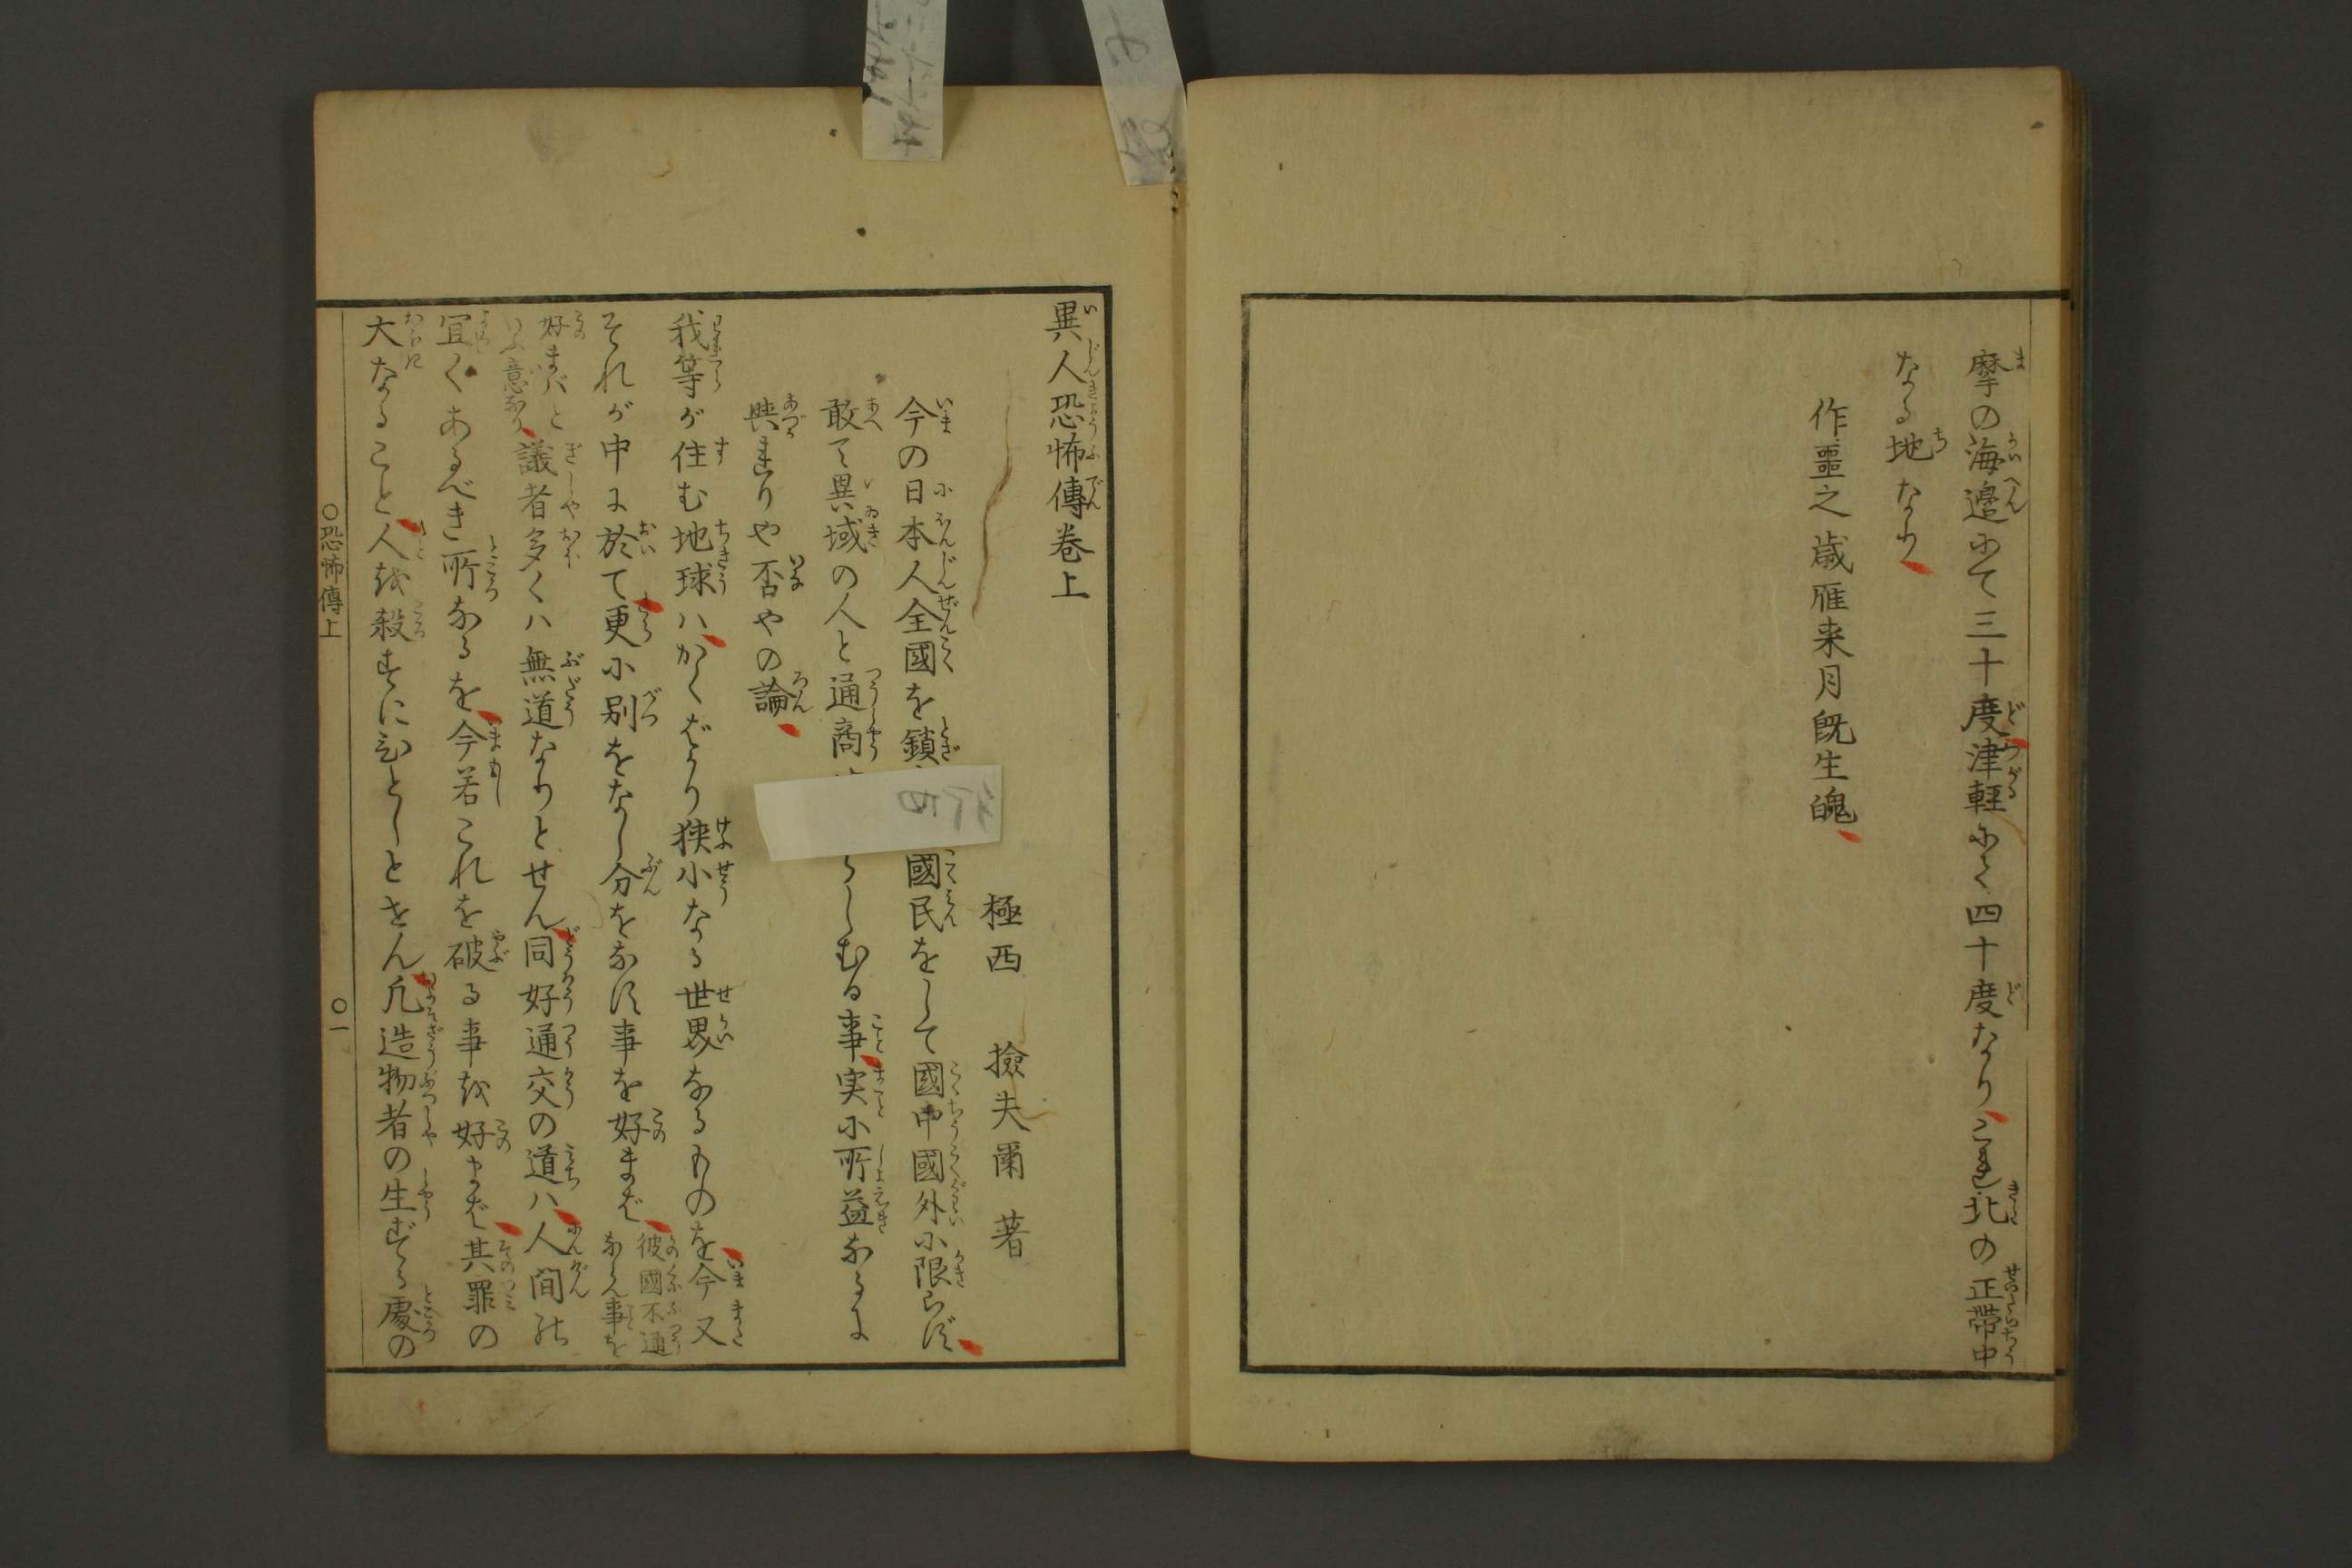 摩の海邉にて三十度津軽にて四十度なりこれ北の正帯中
なる地なり
作噩之歳雁来月旣生魄
異人恐怖傳巻上
極西 撿夫爾 著
今の日本人全國を鎖
國民をして國中國外に限らず
敢て異域の人と通商
らしむる事実に所益あるに
與れりや否やの論
我等が住む地球ハかくばかり狭小なる世界なるものを今又
それが中に於て更に別をなし分をなす事を好まば
彼國不通
なる事を
好まバと
いふ意なり
議者多くハ無道なりとせん同好通交の道ハ人間の
宜くあるべき所なるを今若これを破る事を好まば其罪の
大なること人を殺すにひとしとせん凡造物者の生ずる處の
〇恐怖傳上
〇一